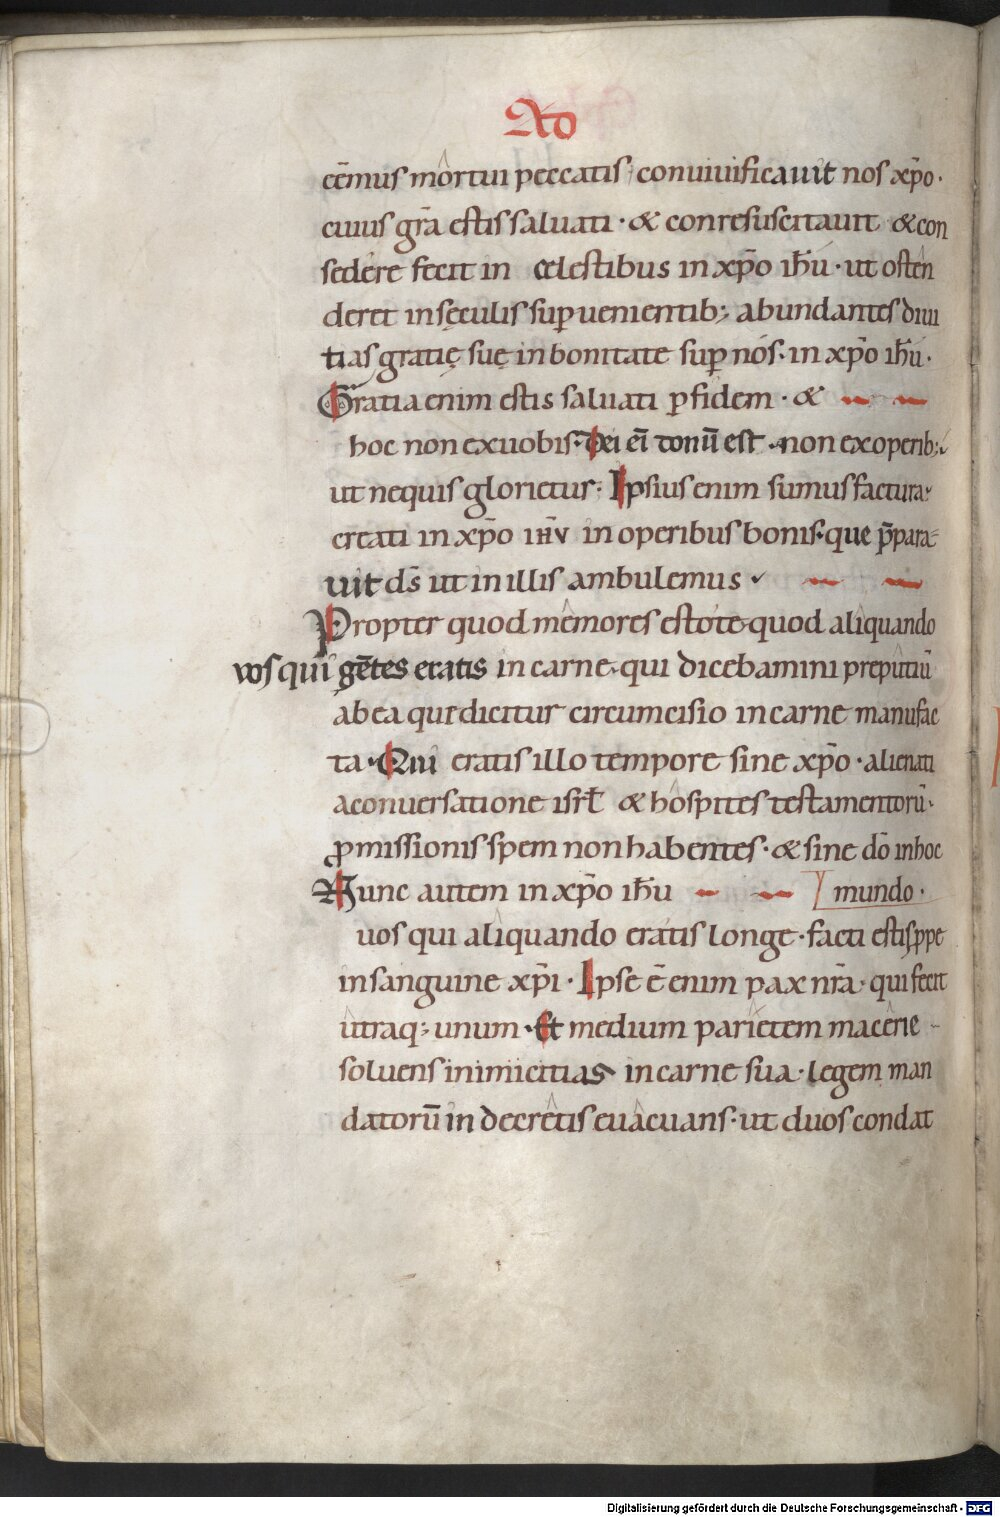 Ad
cēmus mortui peccatis · convivificavit nos xp̄o ·
cuius gr̄a estis salvati · & conresuscitavit & con
sedere fecit in celestibus in xp̄o ih̄u · ut osten
deret in sęculis sup̱venientib; abundantes divi
tias gratię suę in bonitate sup̱ nos · in xp̄o ih̄u ·
Gratia enim estis salvati p̱ fidem · &
hoc non ex vobis · Dei eī donū est · non ex operib;
ut nequis glorietur : Ipsius enim sumus factura ·
creati in xp̄o ih̄v in operibus bonis · que p̄para
vit d̄s ut in illis ambulemus
Propter quod memores estote quod aliquando
vos qui gētes eratis in carne · qui dicebamini preputiū
ab ea qui dicitur circumcisio in carne manufac
ta · Qui eratis illo tempore sine xp̄o · alienati
a conversatione isrl̄ & hospites testamentorū ·
ꝓmissionis spem non habentes · & sine dō in hoc
Nunc autem in xp̄o ih̄u mundo ·
vos qui aliquando eratis longe · facti estis ꝓpe
in sanguine xp̄i · Ipse ē enim pax nr̄a · qui fecit
utraq; unum · Et medium parietem macerie
solvens inimicitias in carne sua · legem man
datorū in decretis evacuans · ut duos condat
Digitalisierung gefördert durch die Deutsche Forschungsgemeinschaft - DFG